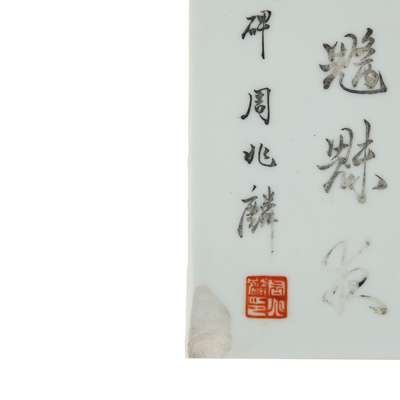 魑魅
碑周兆麟
周兆
麟印